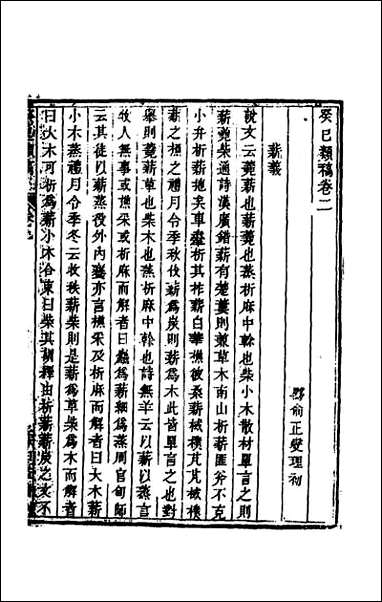 癸巳類稿卷二
黟俞正燮理初
薪義
說文云蕘薪也薪蕘也蒸析麻中榦也柴小木散材單言之則
薪蕘柴通詩漢廣錯薪有楚蔞則兼草木南山析薪匪斧不克
小弁析薪扡矣車舝析其柞薪白華樵彼桑薪棫樸芃芃棫樸
薪之槱之禮月令季秋伐薪為炭則薪為木此皆單言之也對
舉則蕘薪草也柴木也蒸析麻中榦也詩無羊云以薪以蒸言
牧人無事或樵采或析麻而解者曰麤為薪細為蒸周官甸師
云其徒以薪蒸役外內饔亦言樵采及析麻而解者曰大木薪
小木蒸禮月令季冬云收秩薪柴則是薪為草柴為木而解者
曰大木可析為薪小木合束曰柴其訓釋由析薪薪炭之文不